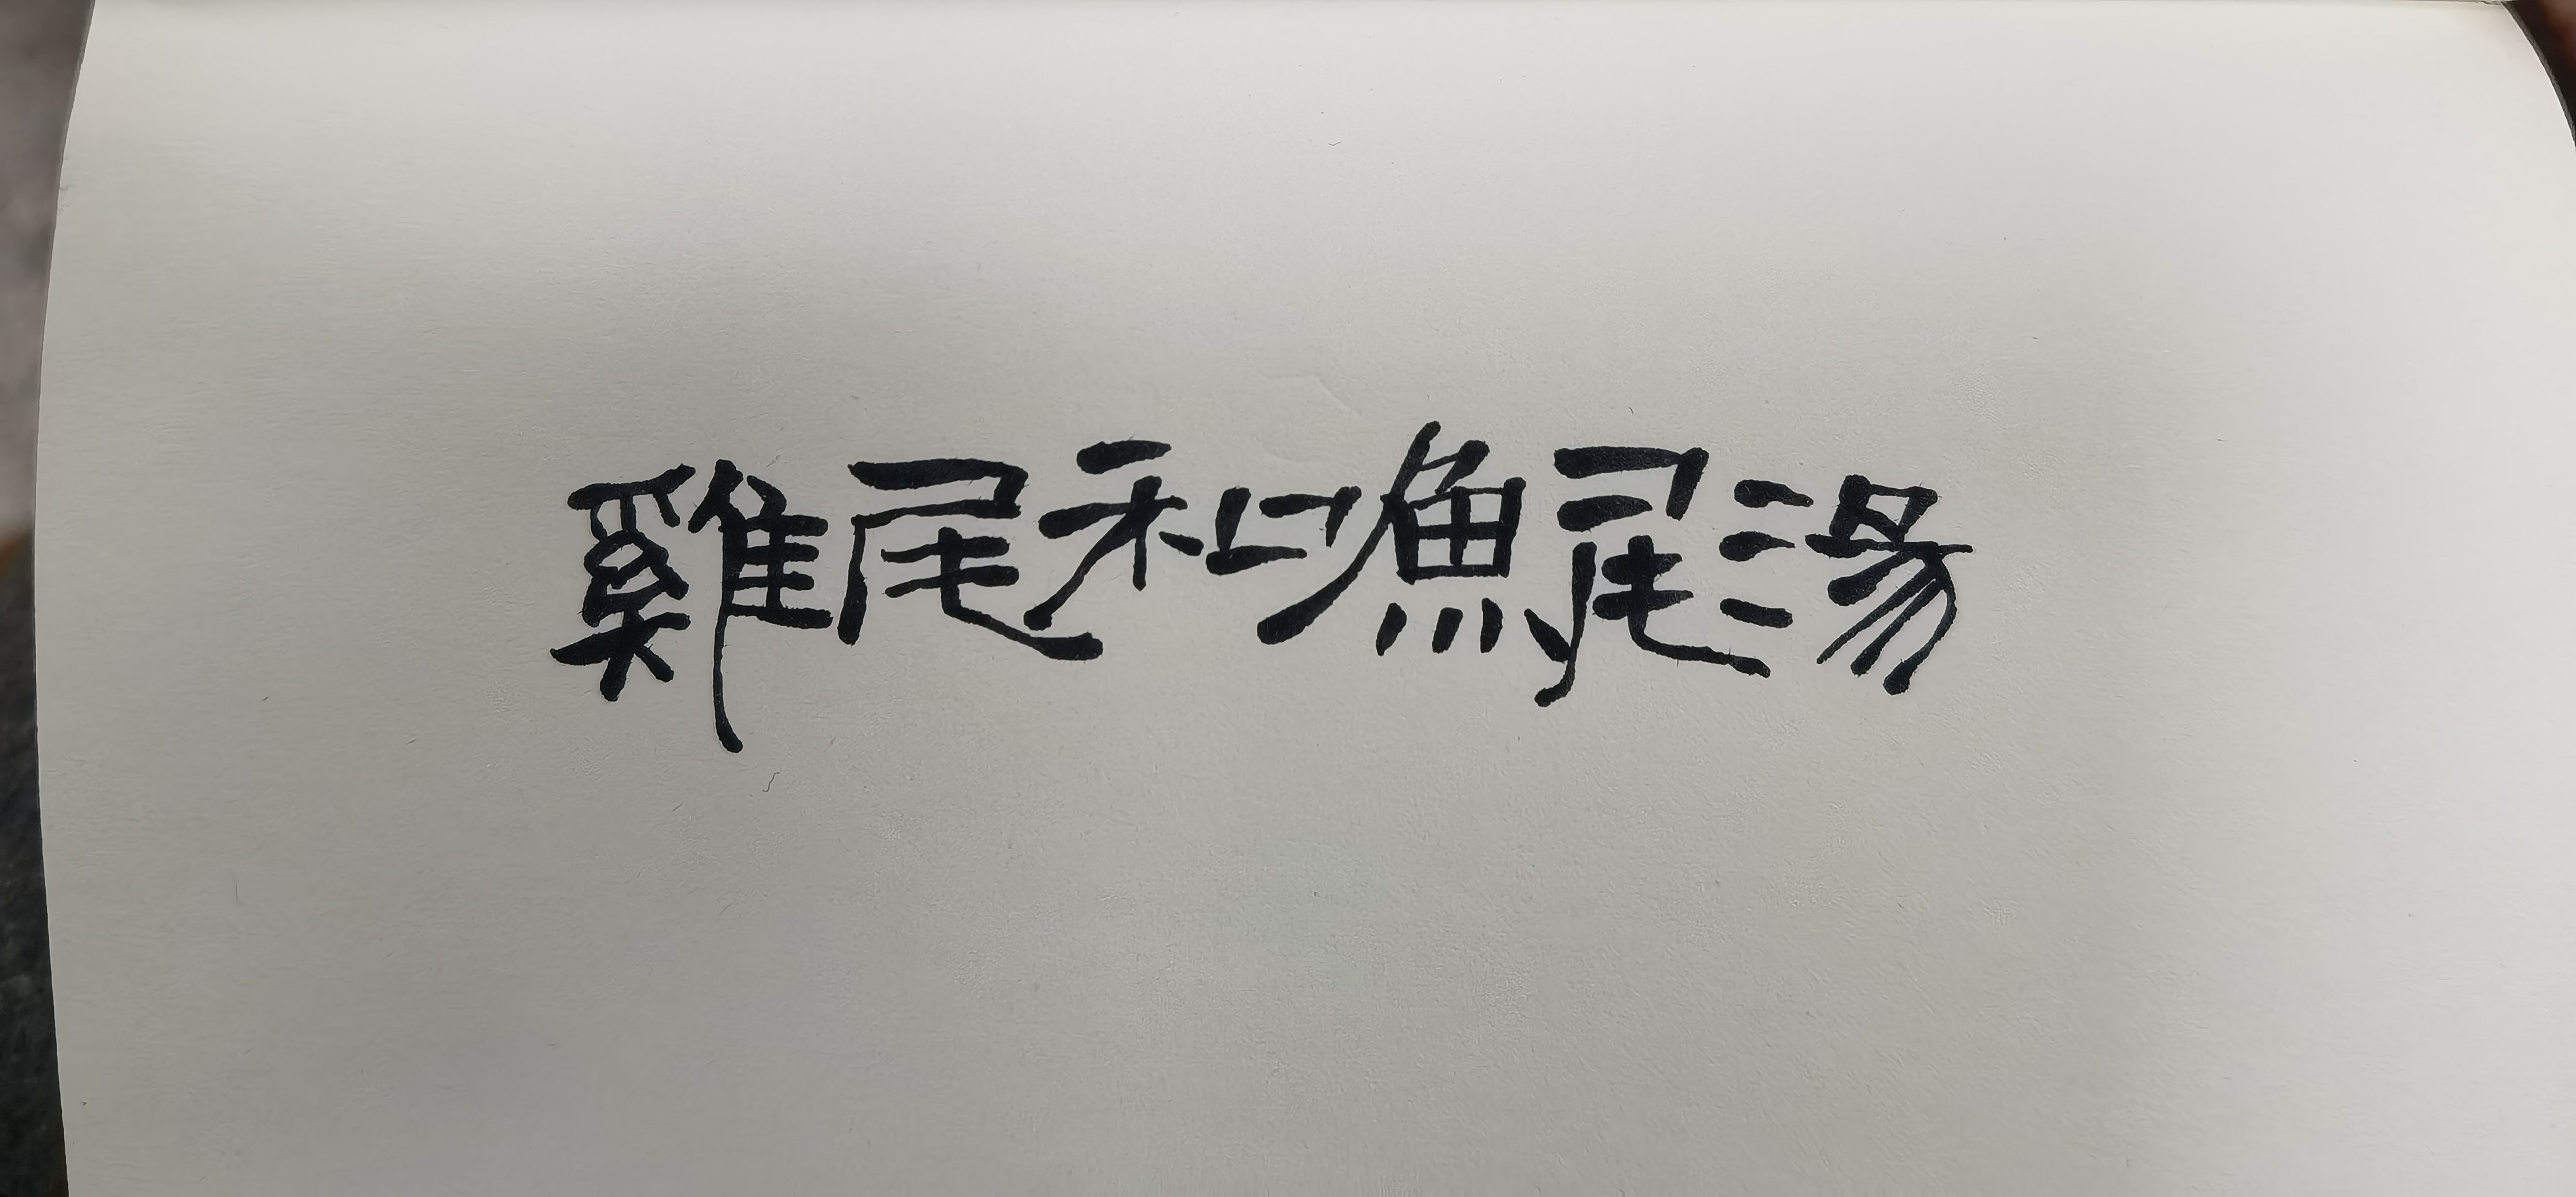 雞尾和魚尾湯